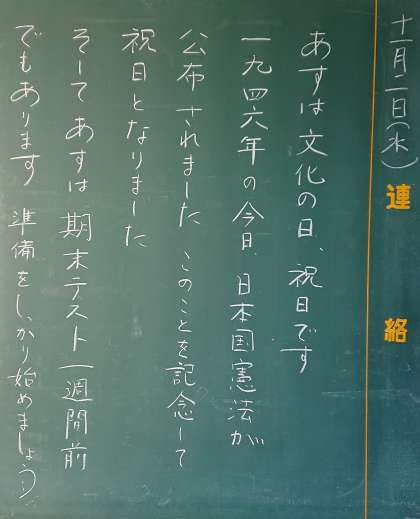 十一月二日(水)
連絡
あすは文化の日、祝日です
一九四六年の今日、日本国憲法が
公布されました このことを記念して
祝日となりました
そしてあすは期末テスト一週間前
でもあります 準備をしっかり始めましょう